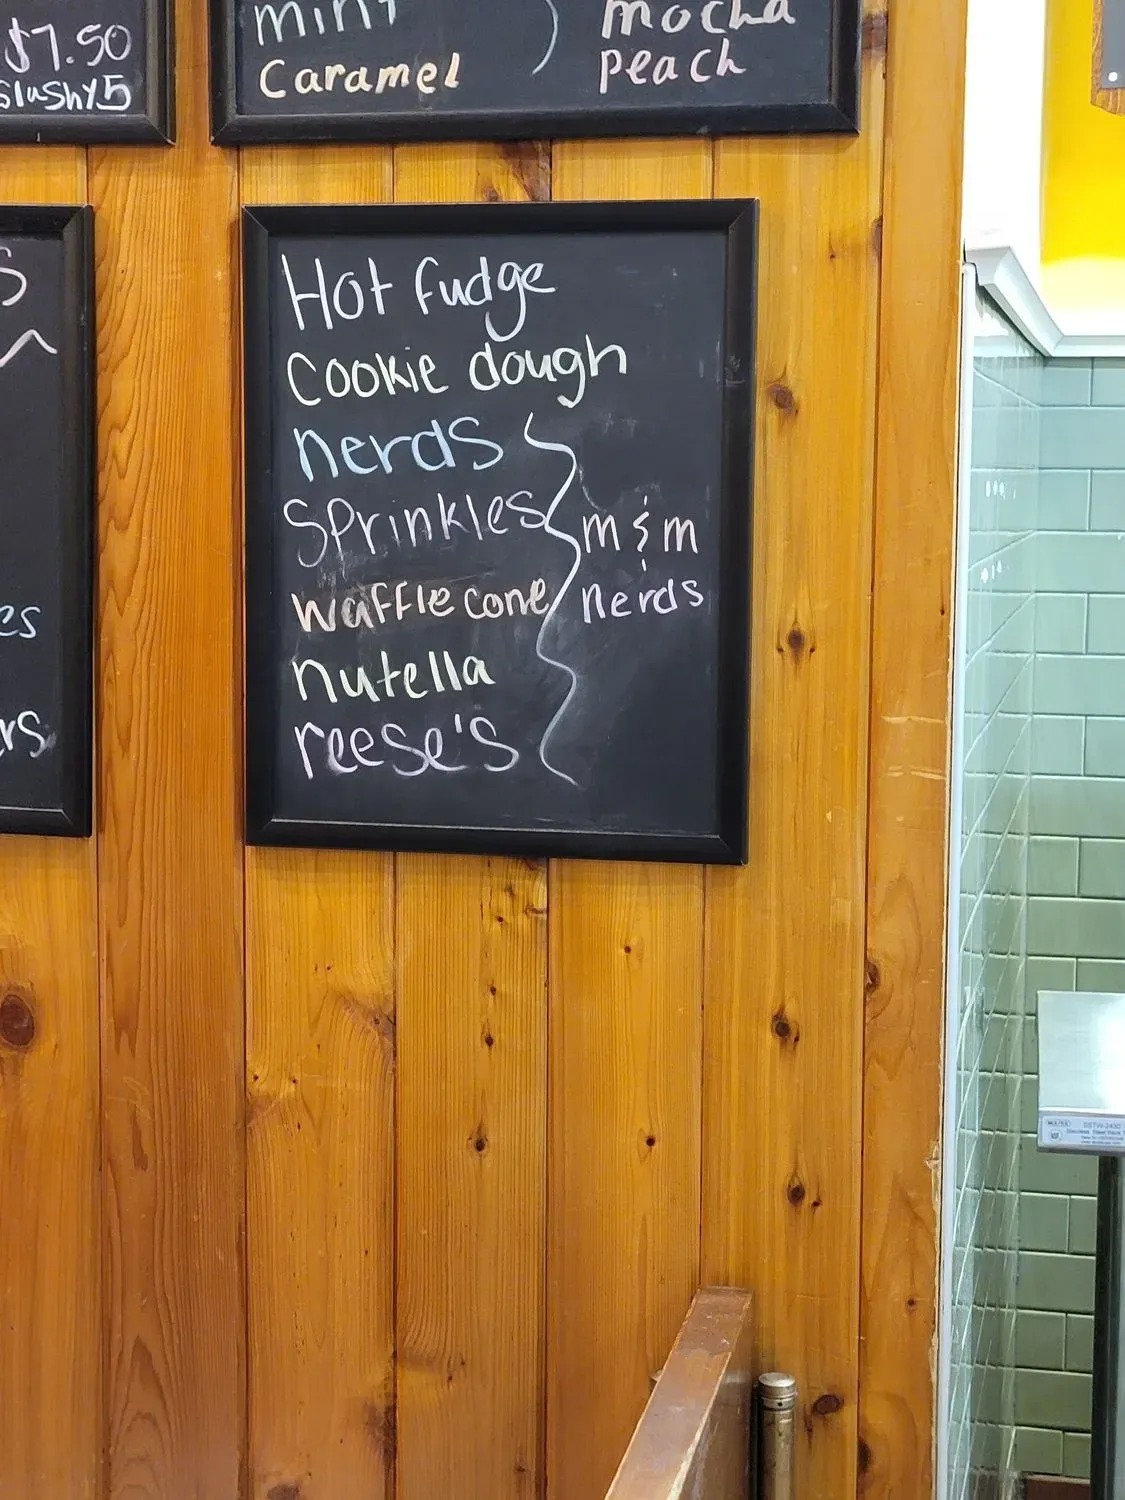 $7.50
Slushy 5
mint
Caramel
mocha
peach
Hot fudge
Cookie dough
nerds
Sprinkles
waffle cone
nutella
reese's
m & m
nerds